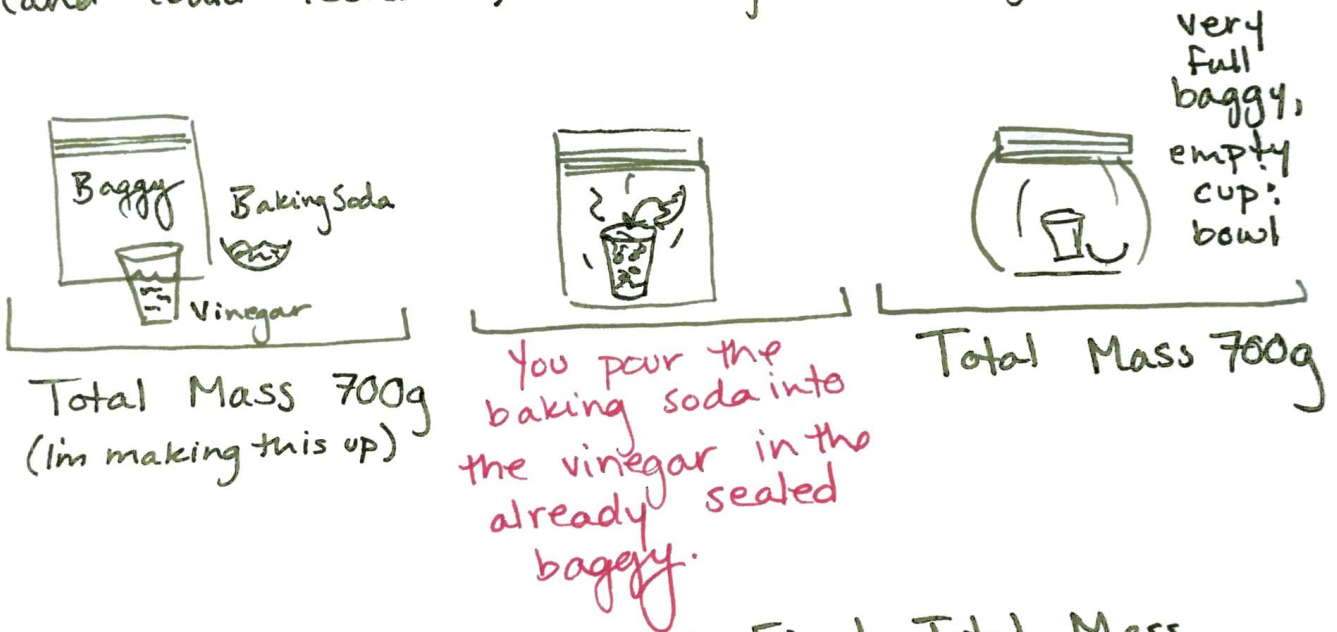 (and could
very
full
baggy,
empty
cup:
bowl
Baggy
Baking Soda
Vinegar
Total Mass 700g
(I'm making this up)
You pour the
baking soda into
the vinegar in the
already sealed
baggy.
Total Mass 700g
Final Total Mass